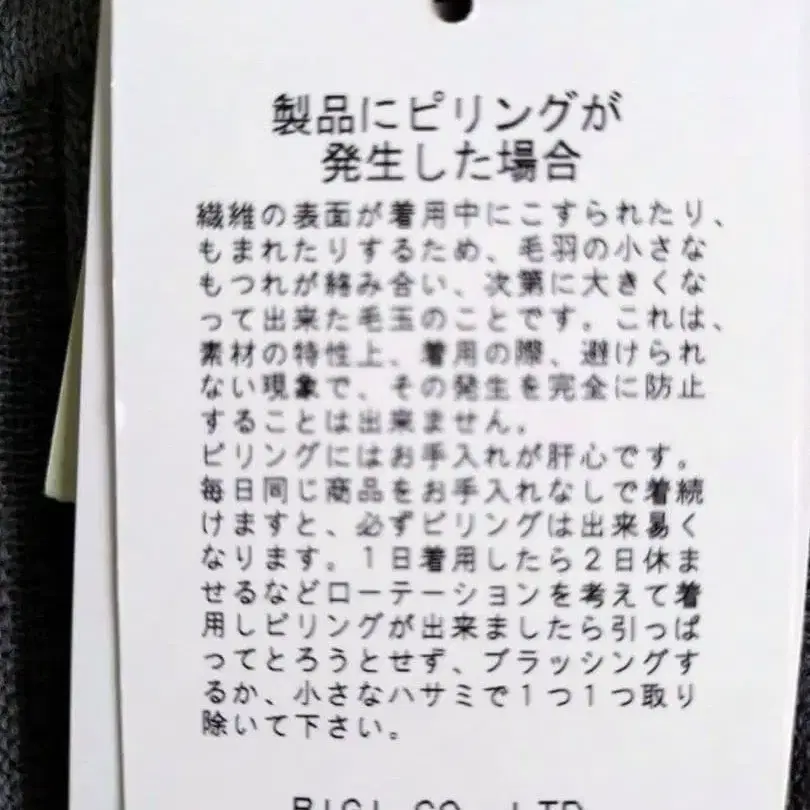 製品にピリングが
発生した場合
繊維の表面が着用中にこすられたり、
もまれたりするため、毛羽の小さな
もつれが絡み合い、次第に大きくな
って出来た毛玉のことです。これは、
素材の特性上、着用の際、避けられ
ない現象で、その発生を完全に防止
することは出来ません。
ピリングにはお手入れが肝心です。
毎日同じ商品をお手入れなしで着続
けますと、必ずピリングは出来易く
なります。1日着用したら2日休ま
せるなどローテーションを考えて着
用しピリングが出来ましたら引っぱ
ってとろうとせず、ブラッシングす
るか、小さなハサミで1つ1つ取り
除いて下さい。
BIGI CO.,LTD.